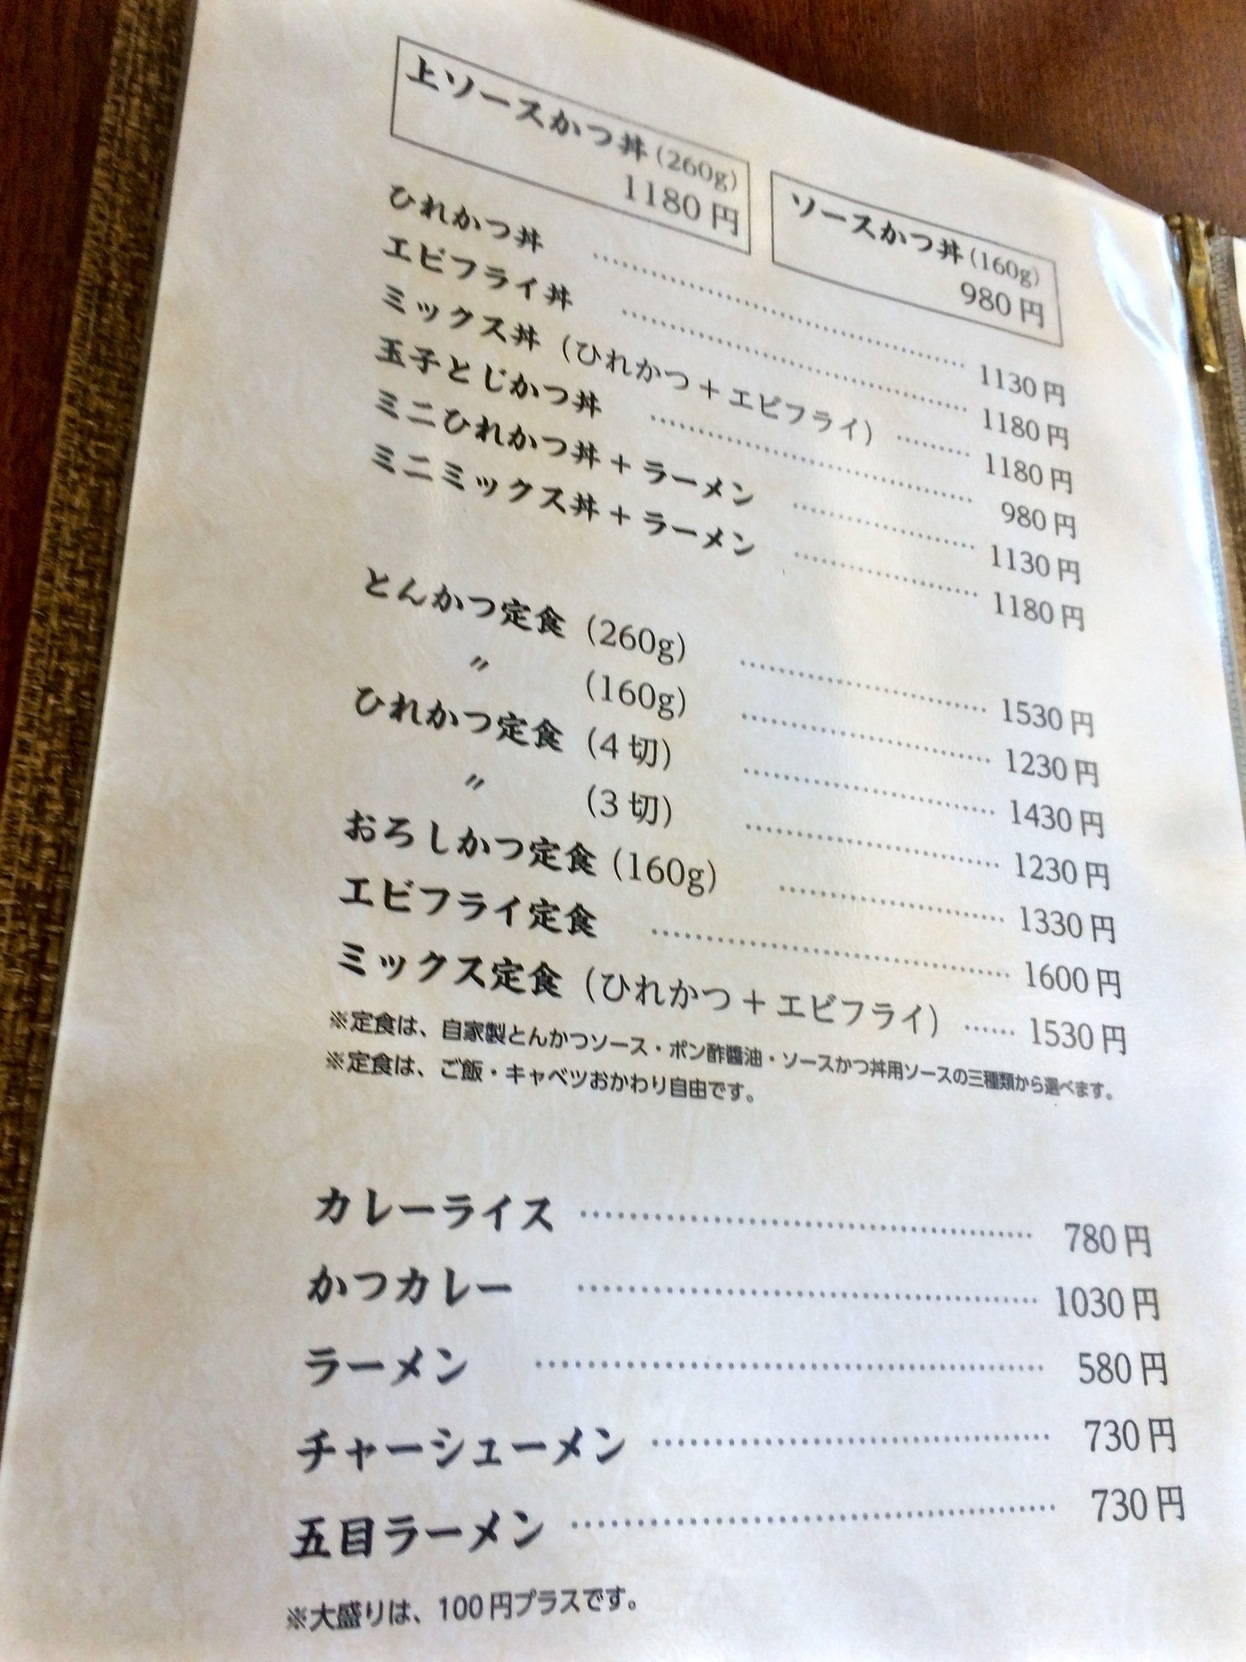 上ソースかつ丼(260g)
1180円
ソースかつ丼(160g)
980円
ひれかつ丼 ………… 1130円
エビフライ丼 ………… 1180円
ミックス丼(ひれかつ+エビフライ) ………… 1180円
玉子とじかつ丼 ………… 980円
ミニひれかつ丼+ラーメン ………… 1130円
ミニミックス丼+ラーメン ………… 1180円
とんかつ定食(260g) ………… 1530円
〃 (160g) ………… 1230円
ひれかつ定食(4切) ………… 1430円
〃 (3切) ………… 1230円
おろしかつ定食(160g) ………… 1330円
エビフライ定食 ………… 1600円
ミックス定食(ひれかつ+エビフライ) …… 1530円
※定食は、自家製とんかつソース・ポン酢醤油・ソースかつ丼用ソースの三種類から選べます。
※定食は、ご飯・キャベツおかわり自由です。
カレーライス ………… 780円
かつカレー ………… 1030円
ラーメン ………… 580円
チャーシューメン ………… 730円
五目ラーメン ………… 730円
※大盛りは、100円プラスです。